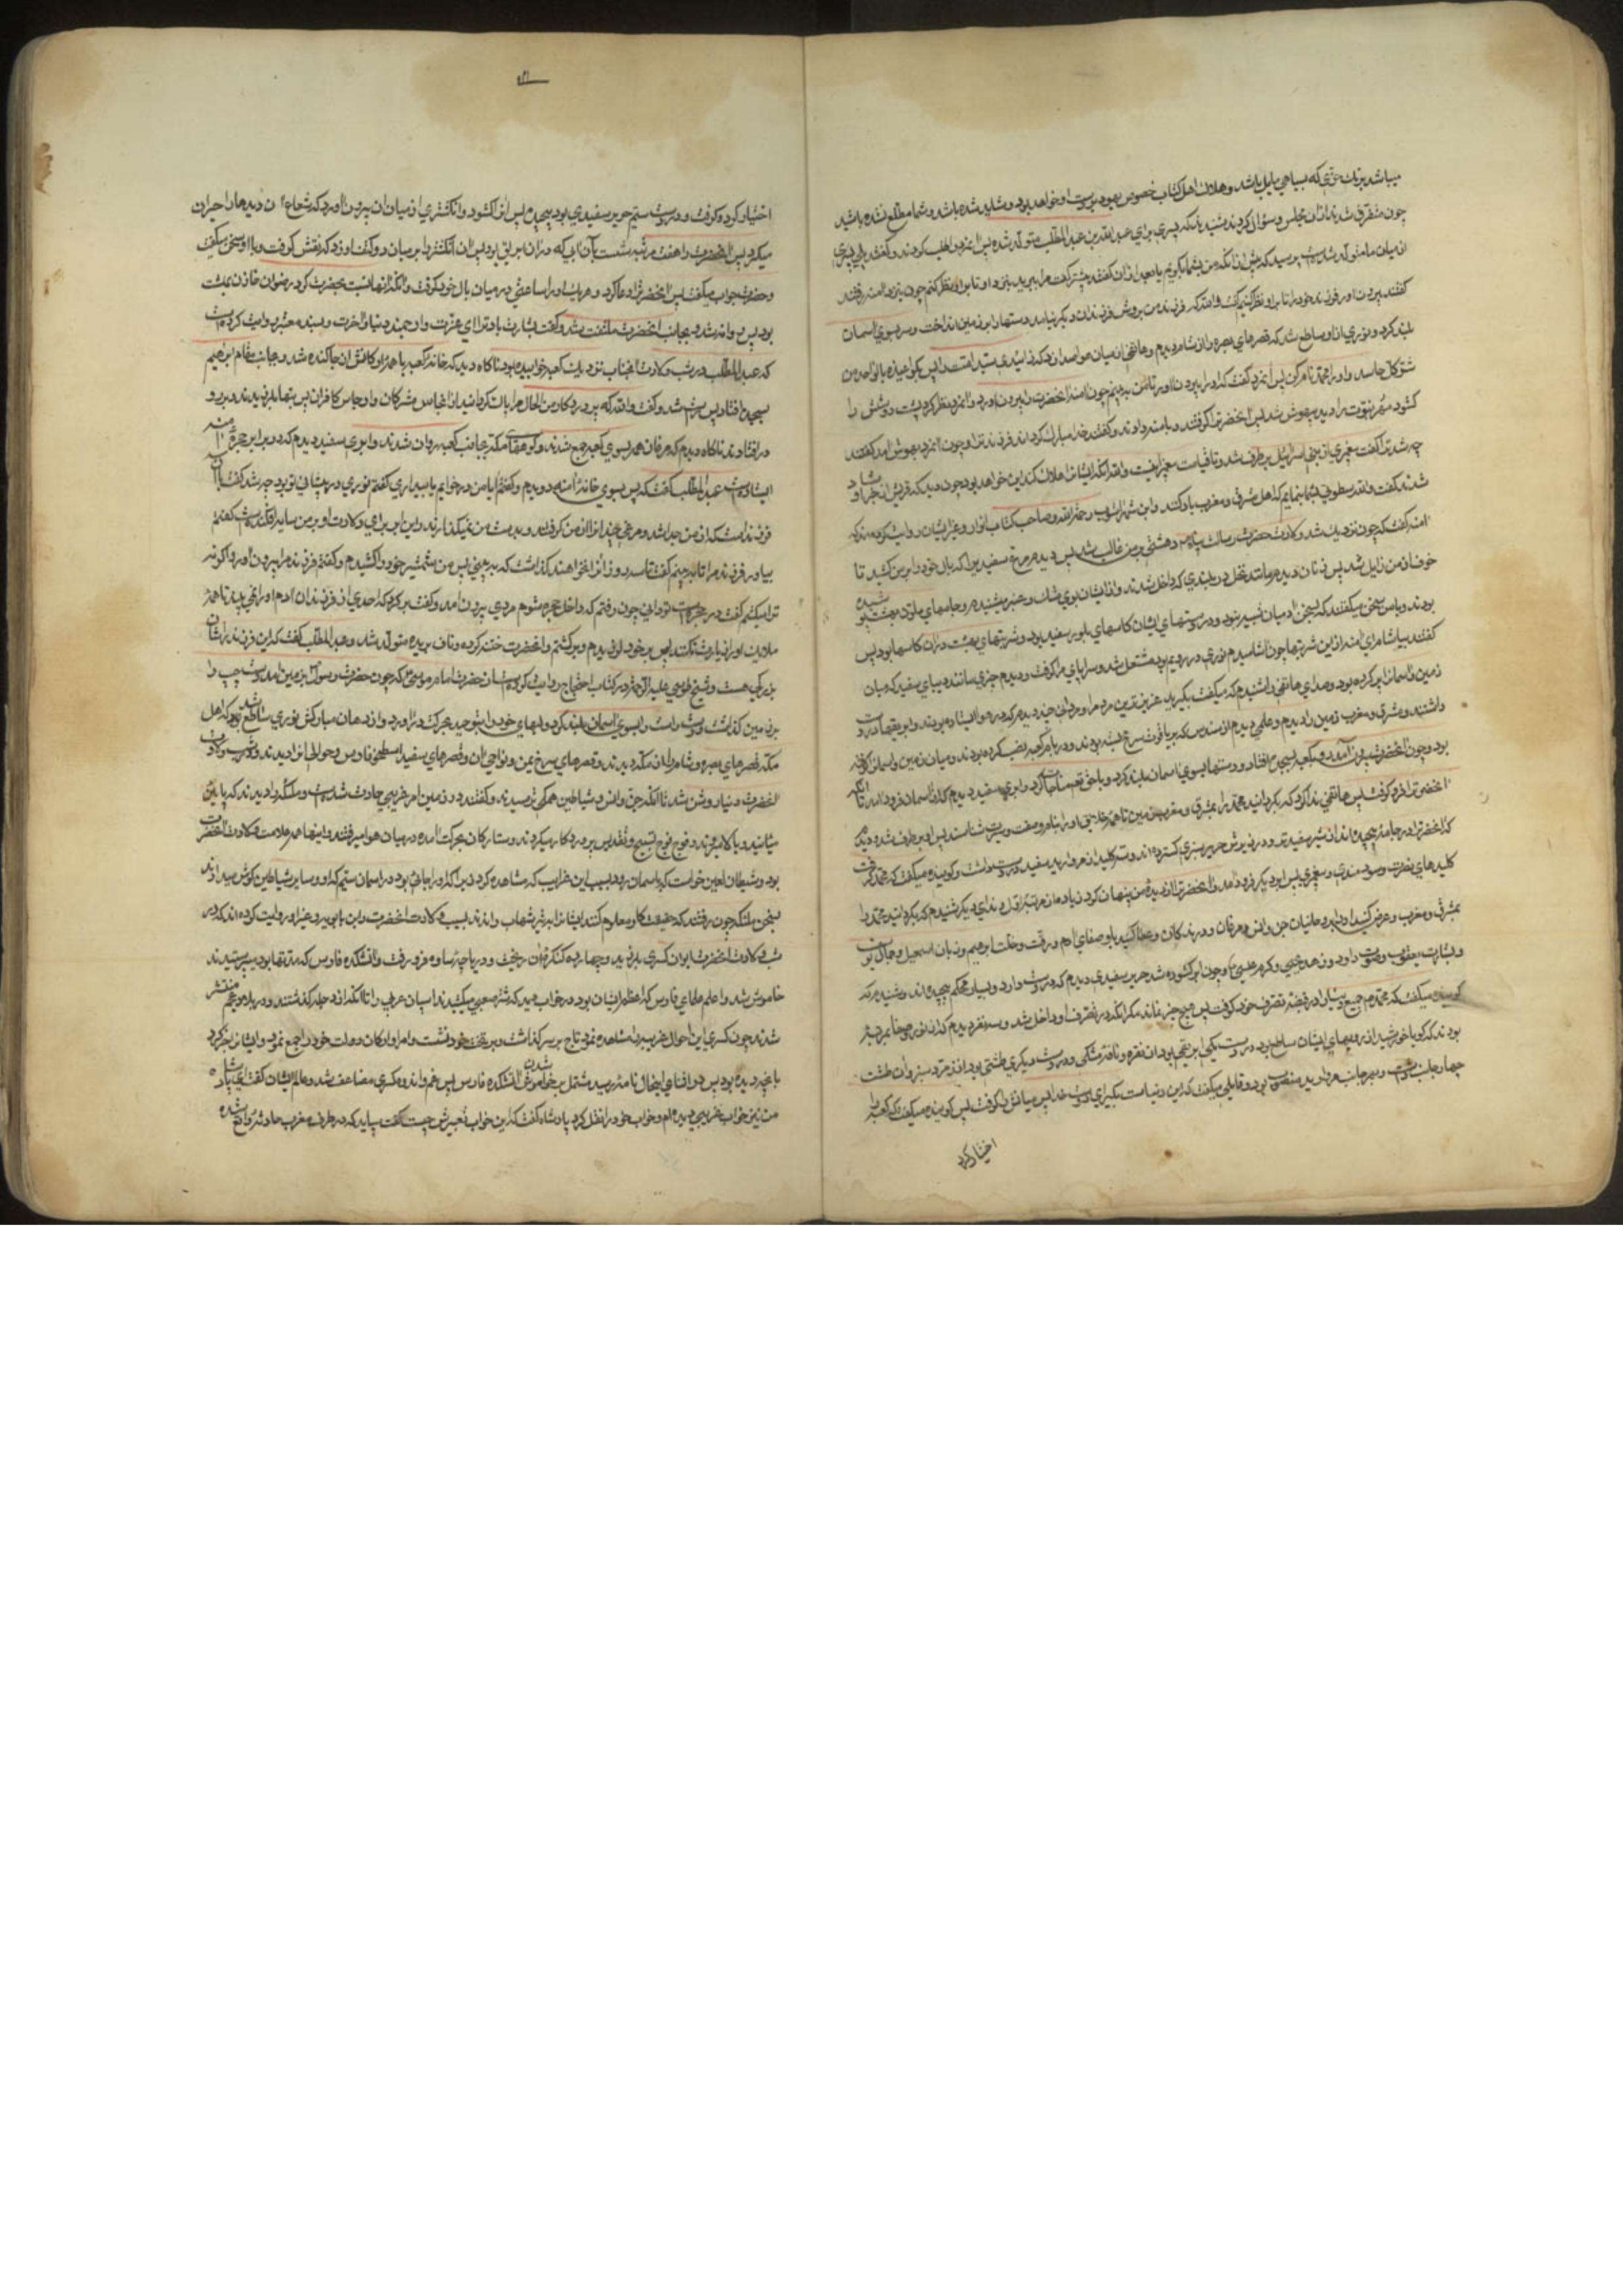 میباشد بزنك خزی که بسیاهی مایل باشد و هلاك اهل کتاب خصوص یهود بر دست او خواهد بود و شاید شده باشد و شما مطلع نشده باشید
چون متفرق شدند ازان مجلس و سؤال کردند شنیدند که پسری برای عبدالله بن عبدالمطلب متولد شده پس انمرد را طلب کردند و گفتند بلی پسری
از میان ما متولد شده است پرسید که پیش ازانکه من بشما بگویم یا بعد ازان گفتند پیشتر گفت مرا ببرید بنزد او تا بر او نظر کنم چون بنزد امنه رفتند
گفتند بیرون اور فرزند خود را تا بر او نظر کنیم گفت والله که فرزند من بروش فرزندان دیگر نیامد دستها را بر زمین انداخت و سر بسوی اسمان
بلند کرد و نوری ازاو ساطع شد که قصرهای بصره را از شام دیدم و هاتفی از میان هوا صدا زد که زائیدی سید امت را پس بگو اعیذه بالواحد من
شر کل حاسد و او را محمد نام کن پس انمرد گفت که او را بیرون اور تا من ببینم چون امنه انحضرت را بیرون اورد و انمرد نظر کرد پشت دوشش را
گشود مهر نبوت را دید بیهوش شد پس انحضرت را گرفتند و بامنه دادند و گفتند خدا مبارک گرداند فرزند ترا و چون انمرد بهوش امد گفتند
چه شد ترا گفت پیغمبری از بنی اسرائیل برطرف شد تا قیامت
شدند گفت والله سطوتی بشما بنمایم که اهل مشرق و مغرب یاد کنند و ابن شهراشوب رحمه الله و صاحب کتاب انوار و غیر ایشان روایت کرده‌اند که
امنه گفت که چون نزدیك شد ولادت حضرت رسالت پناه دهشتی بر من غالب شد پس دیدم مرغ سفیدیرا که بال خود را بر من کشید تا
خوف از من زایل شد پس زنان دیدم مانند نخل در بلندی که داخل شدند و از ایشان بوی مشك و عنبر میشنیدم و جامهای ملون بهشت پوشیده
بودند و با من سخن میگفتند که سخن ادمیان شبیه نبود و در دستهای ایشان کاسهای بلور سفید بود و شربتهای بهشت دران کاسها بود پس
گفتند بیاشام ای امنه از این شربتها چون اشامیدم نوری در رویم بود مشتعل شد و سراپای مرا گرفت و دیدم چیزی مانند دیبای سفید که میان
زمین و اسمان را پر کرده بود و صدای هاتفی را شنیدم که میگفت بگیرید عزیزترین مردم را و مردان چند دیدم که در هوا ایستاده بودند و ابریقها در دست
داشتند و مشرق و مغرب زمین را دیدم و علمی دیدم از سندس که بر یاقوت سرخ بسته بودند و در بام کعبه نصب کرده بودند و میان زمین و اسمان را گرفته
بود و چون انحضرت بیرون آمد رو بکعبه بسجده افتاد و دستها بسوی اسمان بلند کرد و با حق تعالی مناجات کرد و ابری سفید دیدم که از اسمان فرود امد تا انکه
انحضرت را فرو گرفت پس هاتفی ندا کرد که بگردانید محمد را بمشرق و مغرب زمین تا همهٔ خلایق او را بنام و صفت و صورت بشناسند پس ابر برطرف شد و دیدم
که انحضرت را در جامهٔ پیچیده‌اند از شیر سفیدتر و در زیرش حریر سبزی گسترده‌اند و سه کلید از مروارید سفید در دست داشت و گوینده میگفت که محمد گرفت
کلیدهای نصرت و سودمندی و پیغمبری پس ابر دیگر فرود امد و انحضرت را از دیدهٔ من پنهان کرد زیاده از مرتبهٔ اول و ندای دیگر شنیدم که بگردانید محمد را
بمشرق و مغرب و عرض کنید او را بر روحانیان جن و انس و مرغان و درندگان و عطا کنید باو صفای ادم و رقت و خلت ابرهیم و زبان اسمعیل و جمال یوسف
و بشارت یعقوب و صوت داود و زهد یحیی و کرم عیسی و چون ابر گشوده شد حریر سفیدی دیدم که در دست دارد و بسیار محکم پیچیده‌اند و شنیدم که
گوینده میگفت که محمد جمیع دنیا را در قبضهٔ تصرف خود گرفت پس هیچ چیز نماند مگر انکه در تصرف او داخل شد و سه نفر دیدم که از نور و صفا بمرتبهٔ
بودند که گویا خورشید از رویهای ایشان ساطع بود در دست یکی ابریقی بود از نقره و نافهٔ مشکی و در دست دیگری طشتی بود از زمرد سبز و ان طشت
چهار جانب داشت و بهر جانب مرواریدی منصوب بود و قایلی میگفت که این دنیاست بگیر ای دوست خدا پس میانش را گرفت پس گوینده میگفت که کعبه را
اختیار کرد
اختیار کرد و گرفت و در دست سیم حریر سفیدی بود پیچیده پس انرا گشود و انگشتری از میان ان بیرون اورد که شعاع ان دیدها را حیران
میکرد پس انحضرت را هفت مرتبه شست بآن ابی که در ان ابریق بود پس ان انگشتر را بر میان دو کتف او زد که نقش گرفت و با او سخن میگفت
و حضرت جواب میگفت پس انحضرت را دعا کرد و هر یك او را ساعتی در میان بال خود گرفت و انکه انها نسبت بحضرت کرد رضوان خازن بهشت
بود پس روانه شد و بجانب انحضرت ملتفت شد و گفت بشارت باد ترا ای عزت دنیا و اخرت و بسند معتبر روایت کرده است
که عبدالمطلب در شب ولادت انجناب نزدیك کعبه خوابیده بود ناگاه دید که خانهٔ کعبه با همهٔ ارکانش از جا کنده شد و بجانب مقام ابرهیم
بسجده افتاد پس راست شد و گفت والله اکبر پروردگار من الحال مرا پاك گردانید از انجاس مشرکان و ارجاس کافران پس بتها بلرزیدند و بر رو
در افتادند ناگاه دیدم که مرغان همه بسوی کعبه جمع شدند و کوههای مکه بجانب کعبه روان شدند و ابری سفید دیدم که در برابر حجرهٔ امنه
ایستاده است عبدالمطلب گفت که پس بسوی خانهٔ امنه دویدم و گفتم ایا من در خوابم یا بیداری گفتم نوری در پیشانی تو بود چه شد گفت با ان
فرزند است که از من جدا شد و مرغی چند انرا از من گرفتند و بدست من نمیگذارند و این ابر برای ولادت او بر من سایه افکنده است گفتم
بیاور فرزند مرا تا ببینم گفت تا سه روز انرا نخواهند گذاشت که ببینی پس من شمشیر خود را کشیدم و گفتم فرزند مرا بیرون اور و اگر نه
ترا میکشم گفت در حجره است تو دانی چون رفتم که داخل حجره شوم مردی بیرون امد و گفت برگرد که احدی از فرزندان ادم او را نمی بیند تا همهٔ
ملایك او را زیارت نکنند پس بر خود لرزیدم و برگشتم و انحضرت ختنه کرده و ناف بریده متولد شد و عبدالمطلب گفت که این فرزند را شان
بزرگی هست و شیخ طبرسی علیه الرحمه در کتاب احتجاج روایت کرده است از حضرت امام موسی که چون حضرت رسول بزمین امد دست چپ را
بر زمین گذاشت و دست راست را بسوی اسمان بلند کرد و لبهای خود را بتوحید بحرکت دراورد و از دهان مبارکش نوری ساطع شد که اهل
مکه قصرهای بصره و شام را ازان دیدند و قصرهای سرخ یمن و نواحی ان و قصرهای سفید اصطخر فارس و حوالی انرا دیدند و در شب ولادت
انحضرت دنیا روشن شد تا انکه جن و انس و شیاطین همگی ترسیدند و گفتند در زمین امر غریبی حادث شده است و ملائکه را دیدند که پایین
میامدند و بالا میرفتند و فوج فوج تسبیح و تقدیس پروردگار میکردند و ستارگان بحرکت امده در میان هوا میرفتند و اینها همه علامت ولادت انحضرت
بود و شیطان لعین خواست که باسمان رود بسبب این غرایب که مشاهده کرد زیرا که او را جائی بود در اسمان سیم که او و سایر شیاطین گوش میدادند
بسخن ملئکه چون رفتند که حقیقت کار معلوم کنند ایشانرا بتیر شهاب راندند بسبب ولادت انحضرت و ابن بابویه و غیر او روایت کرده‌اند که در
شب ولادت انحضرت ایوان کسری بلرزید و چهارده کنگرهٔ ان ریخت و دریاچهٔ ساوه فرو رفت و اتشکده فارس که مدتها بود میپرستیدند
خاموش شد و اعلم علمای فارس که اعظم ایشان بود در خواب دید که شتر صعبی میکشیدند اسپان عربی را تا انکه از دجله گذشتند و در بلاد عجم منتشر
شدند چون کسری این احوال غریبه را مشاهده نمود تاج بر سر گذاشت و بر تخت خود نشست و امرا و ارکان دولت خود را جمع نمود و ایشانرا خبر کرد
بانچه دیده بود پس در اثنای اینحال نامهٔ رسید مشتمل بر خاموش شدن اتشکده فارس پس غم و اندوه کسری مضاعف شد و عالم ایشان گفت ای پادشاه
من نیز خواب غریبی دیده‌ام و خواب خود را نقل کرد پادشاه گفت که این خواب تعبیرش چیست گفت بیاید که در طرف مغرب حادثهٔ واقع شده